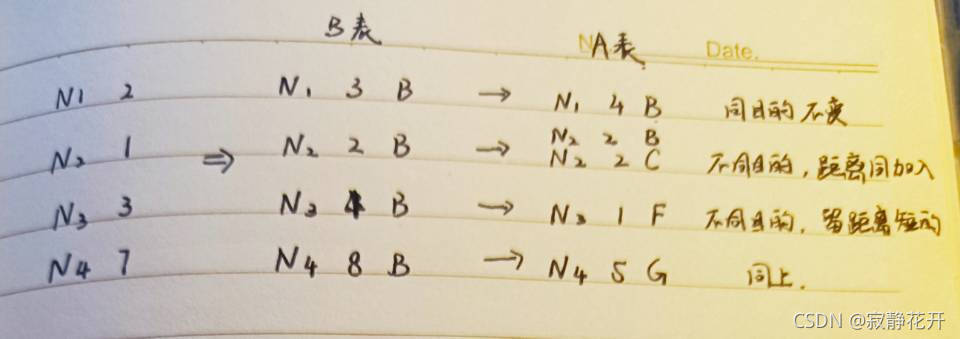 B表 NA表 Date.
N1 2 N1 3 B → N1 4 B 同目的不变
N2 2 B
N2 1 ⇒ N2 2 B → N2 2 C 不同目的，距离同加入
N3 3 N3 4 B → N3 1 F 不同目的，留距离短的
N4 7 N4 8 B → N4 5 G 同上.
CSDN @寂静花开